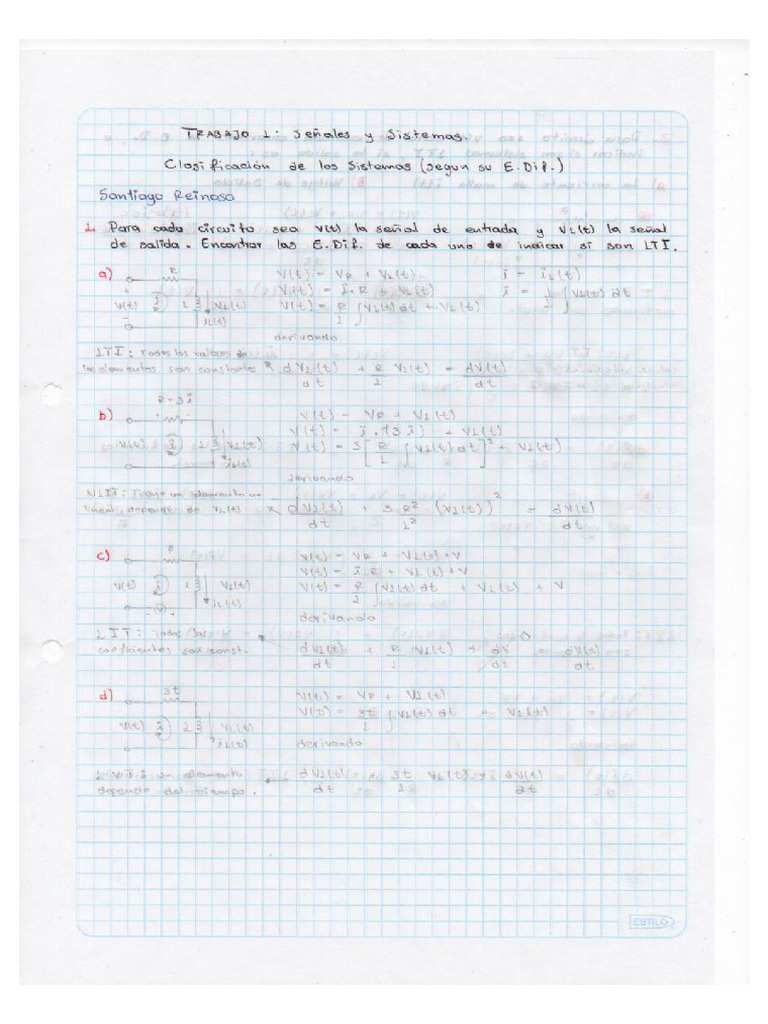 TRABAJO 1: Señales y Sistemas.
Clasificación de los Sistemas (segun su E.Dif.)
Santiago Reinoso
1. Para cada circuito sea V(t) la señal de entrada y VL(t) la señal
de salida. Encontrar las E.Dif. de cada uno de indicar si son LTI.
a) R V(t) = VR + VL(t) i = iL(t)
V(t) = i.R + VL(t) i = 1/L ∫ VL(t) dt
V(t) i L VL(t) V(t) = R/L ∫ VL(t) dt + VL(t)
iL(t)
derivando
LTI: Todos los valores de
los elementos son constantes dVL(t)/dt + R/L VL(t) = dV(t)/dt
R=3i
b) V(t) = VR + VL(t)
V(t) = i.(3i) + VL(t)
V(t) i L VL(t) V(t) = 3[R/L ∫ VL(t) dt]² + VL(t)
iL(t)
derivando
NLIT: un elemento no
lineal, depende de dVL(t)/dt + 3 R²/L² (VL(t))² = dV(t)/dt
c) R V(t) = VR + VL(t) + V
V(t) = i R + VL(t) + V
V(t) i L VL(t) V(t) = R/L ∫ VL(t) dt + VL(t) + V
iL(t)
- V +
derivando
LIT: Todos los
coeficientes son const. dVL(t)/dt + R/L VL(t) + dV/dt = dV(t)/dt
0
d) 3t V(t) = VR + VL(t)
V(t) = 3t/L ∫ VL(t) dt + VL(t)
V(t) i L VL(t)
iL(t) derivando
un elemento dVL(t)/dt 3t/L VL(t) dV(t)/dt
depende del tiempo.
ESTILO